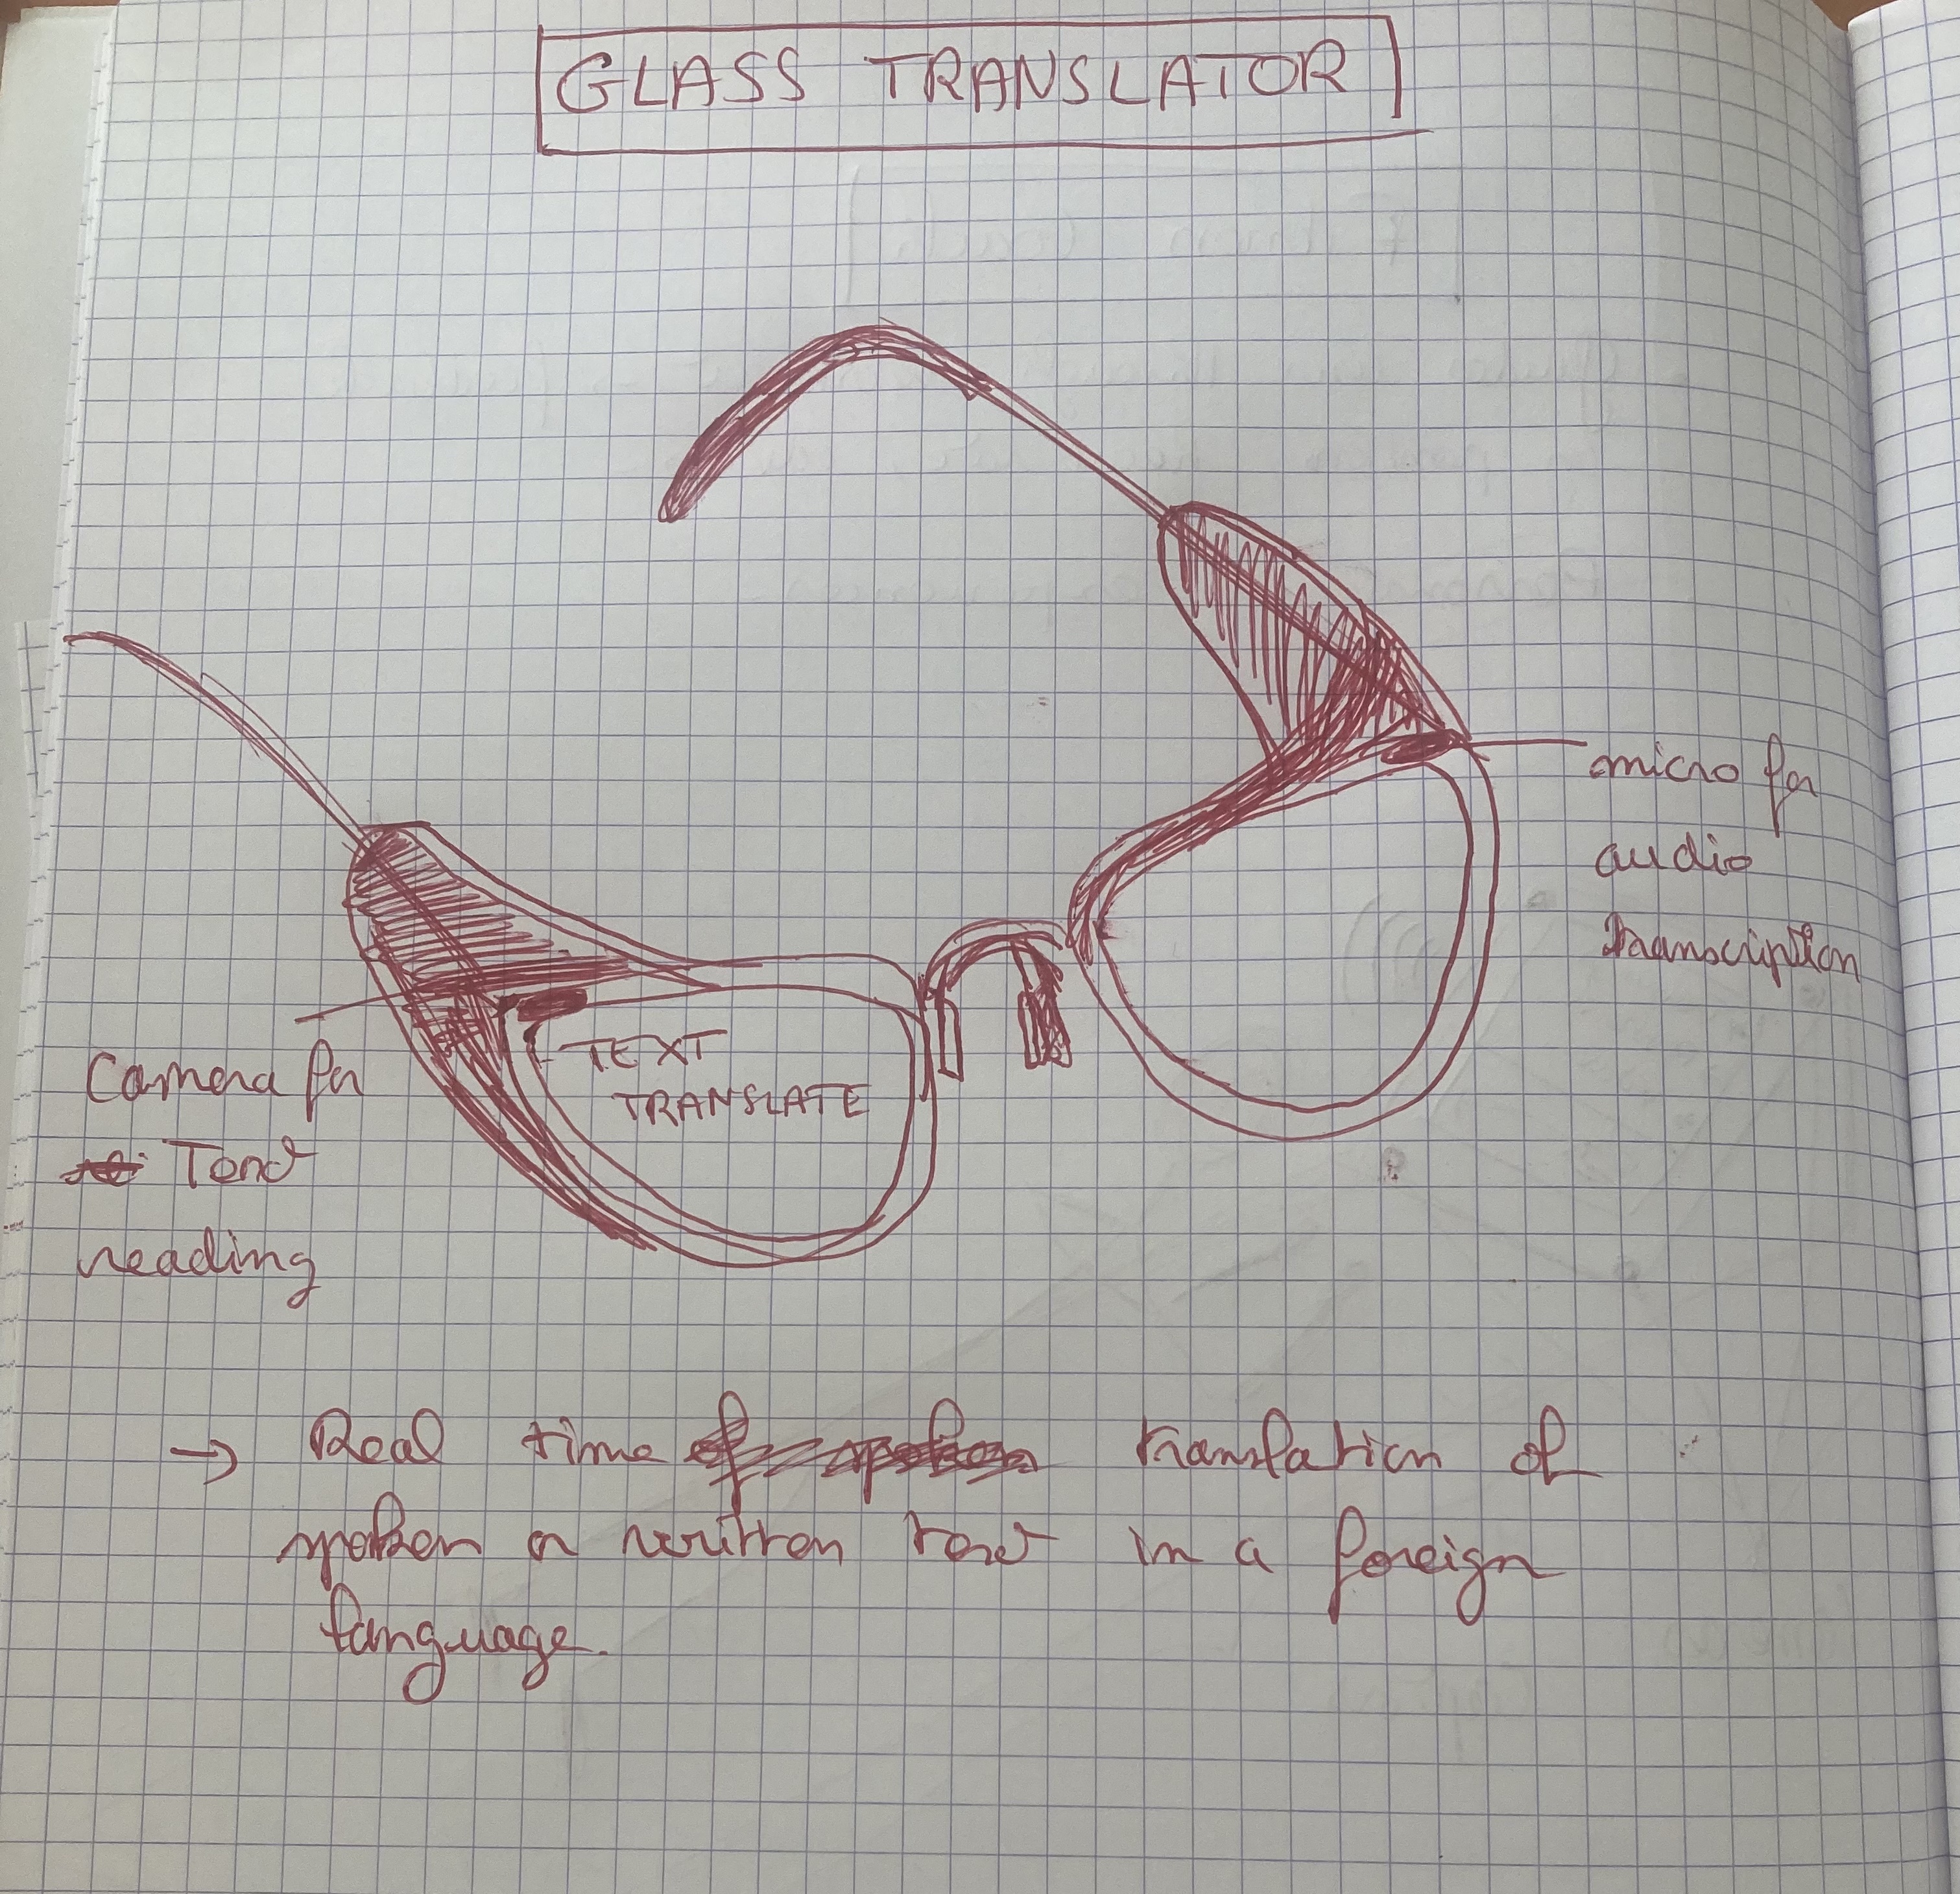 GLASS TRANSLATOR
micro for
audio
transcription
TEXT
TRANSLATE
Camera for
Text
reading
→ Real time translation of
spoken or written text in a foreign
language.